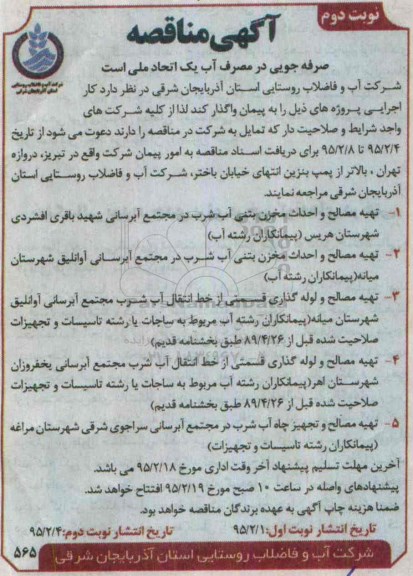 نوبت دوم
آگهی مناقصه
صرفه جویی در مصرف آب یک اتحاد ملی است
شرکت آب و فاضلاب روستایی
استان آذربایجان شرقی
شرکت آب و فاضلاب روستایی استان آذربایجان شرقی در نظر دارد کار
اجرایی پروژه های ذیل را به پیمان واگذار کند لذا از کلیه شرکت های
واجد شرایط و صلاحیت دار که تمایل به شرکت در مناقصه را دارند دعوت می شود از تاریخ
۹۵/۲/۴ تا ۹۵/۲/۸ برای دریافت اسناد مناقصه به امور پیمان شرکت واقع در تبریز، دروازه
تهران ، بالاتر از پمپ بنزین انتهای خیابان باختر، شرکت آب و فاضلاب روستایی استان
آذربایجان شرقی مراجعه نمایند.
۱- تهیه مصالح و احداث مخزن بتنی آب شرب در مجتمع آبرسانی شهید باقری افشردی
شهرستان هریس (پیمانکاران رشته آب)
۲- تهیه مصالح و احداث مخزن بتنی آب شرب در مجتمع آبرسانی آوانلیق شهرستان
میانه(پیمانکاران رشته آب)
۳- تهیه مصالح و لوله گذاری قسمتی از خط انتقال آب شرب مجتمع آبرسانی آوانلیق
شهرستان میانه(پیمانکاران رشته آب مربوط به ساجات یا رشته تاسیسات و تجهیزات
صلاحیت شده قبل از ۸۹/۴/۲۶ طبق بخشنامه قدیم)
۴- تهیه مصالح و لوله گذاری قسمتی از خط انتقال آب شرب مجتمع آبرسانی یخفروزان
شهرستان اهر(پیمانکاران رشته آب مربوط به ساجات یا رشته تاسیسات و تجهیزات
صلاحیت شده قبل از ۸۹/۴/۲۶ طبق بخشنامه قدیم)
۵- تهیه مصالح و تجهیز چاه آب شرب در مجتمع آبرسانی سراجوی شرقی شهرستان مراغه
(پیمانکاران رشته تاسیسات و تجهیزات)
آخرین مهلت تسلیم پیشنهاد آخر وقت اداری مورخ ۹۵/۲/۱۸ می باشد.
پیشنهادهای واصله در ساعت ۱۰ صبح مورخ ۹۵/۲/۱۹ افتتاح خواهد شد.
ضمنا هزینه چاپ آگهی به عهده برندگان مناقصه خواهد بود.
تاریخ انتشار نوبت اول: ۹۵/۲/۱ تاریخ انتشار نوبت دوم: ۹۵/۲/۴
شرکت آب و فاضلاب روستایی استان آذربایجان شرقی
۵۶۵